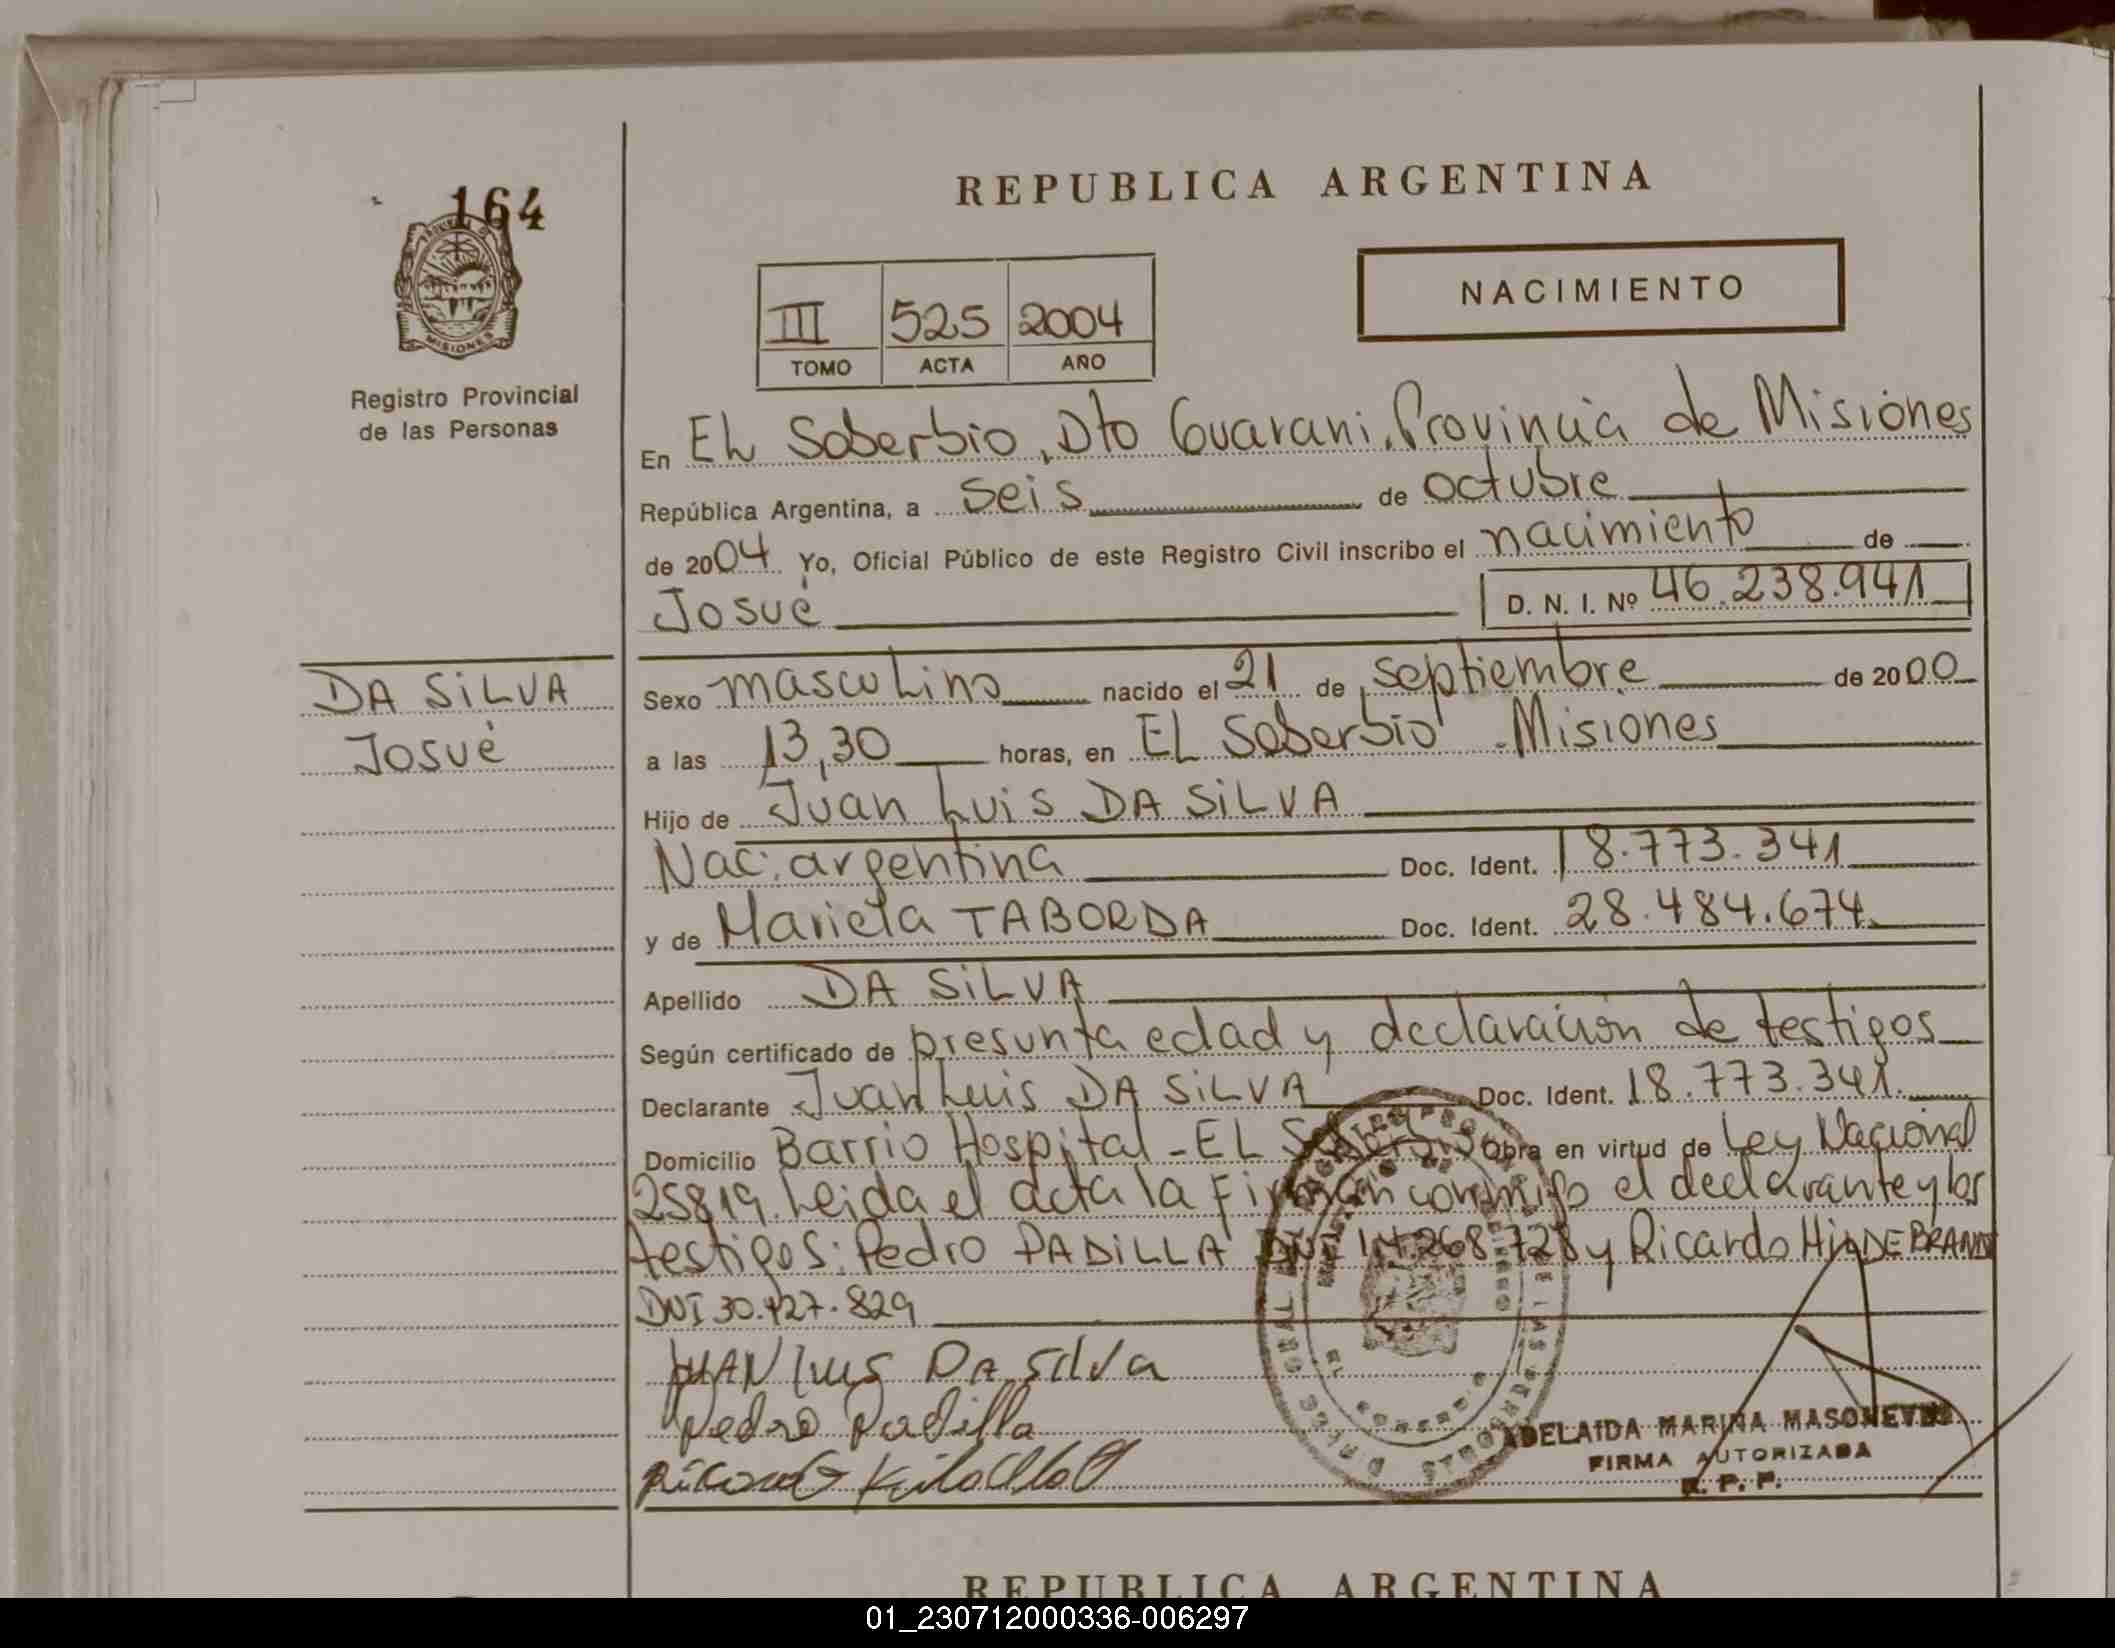 164
MISIONES
Registro Provincial
de las Personas
REPUBLICA ARGENTINA
NACIMIENTO
III 525 2004
TOMO ACTA AÑO
En EL Soberbio, Dto Guarani, Provincia de Misiones
República Argentina, a seis de octubre
de 2004 Yo, Oficial Público de este Registro Civil inscribo el nacimiento de
Josué D. N. I. Nº 46.238.941
DA SiLVA
Josué
Sexo masculino nacido el 21 de septiembre de 2000
a las 13,30 horas, en EL Soberbio - Misiones
Hijo de Juan Luis DA SiLVA
Nac: argentina Doc. Ident. 18.773.341
y de Mariela TABORDA Doc. Ident. 28.484.674
Apellido DA SiLVA
Según certificado de presunta edad y declaración de testigos
Declarante Juan Luis DA SiLVA Doc. Ident. 18.773.341
Domicilio Barrio Hospital - EL Soberbio Obra en virtud de Ley Nacional
25819. Leida el acta la Firman conmigo el declarante y los
testigos: Pedro PADILLA DNI 14.268.728 y Ricardo HiLDEBRAND
DNI 30.427.829
JUAN LUIS DA SilVa
Pedro Padilla
Ricardo
ADELAIDA MARINA MASONEVE
FIRMA AUTORIZADA
R. P. P.
EL SOBERBIO
REPUBLICA ARGENTINA
01_230712000336-006297